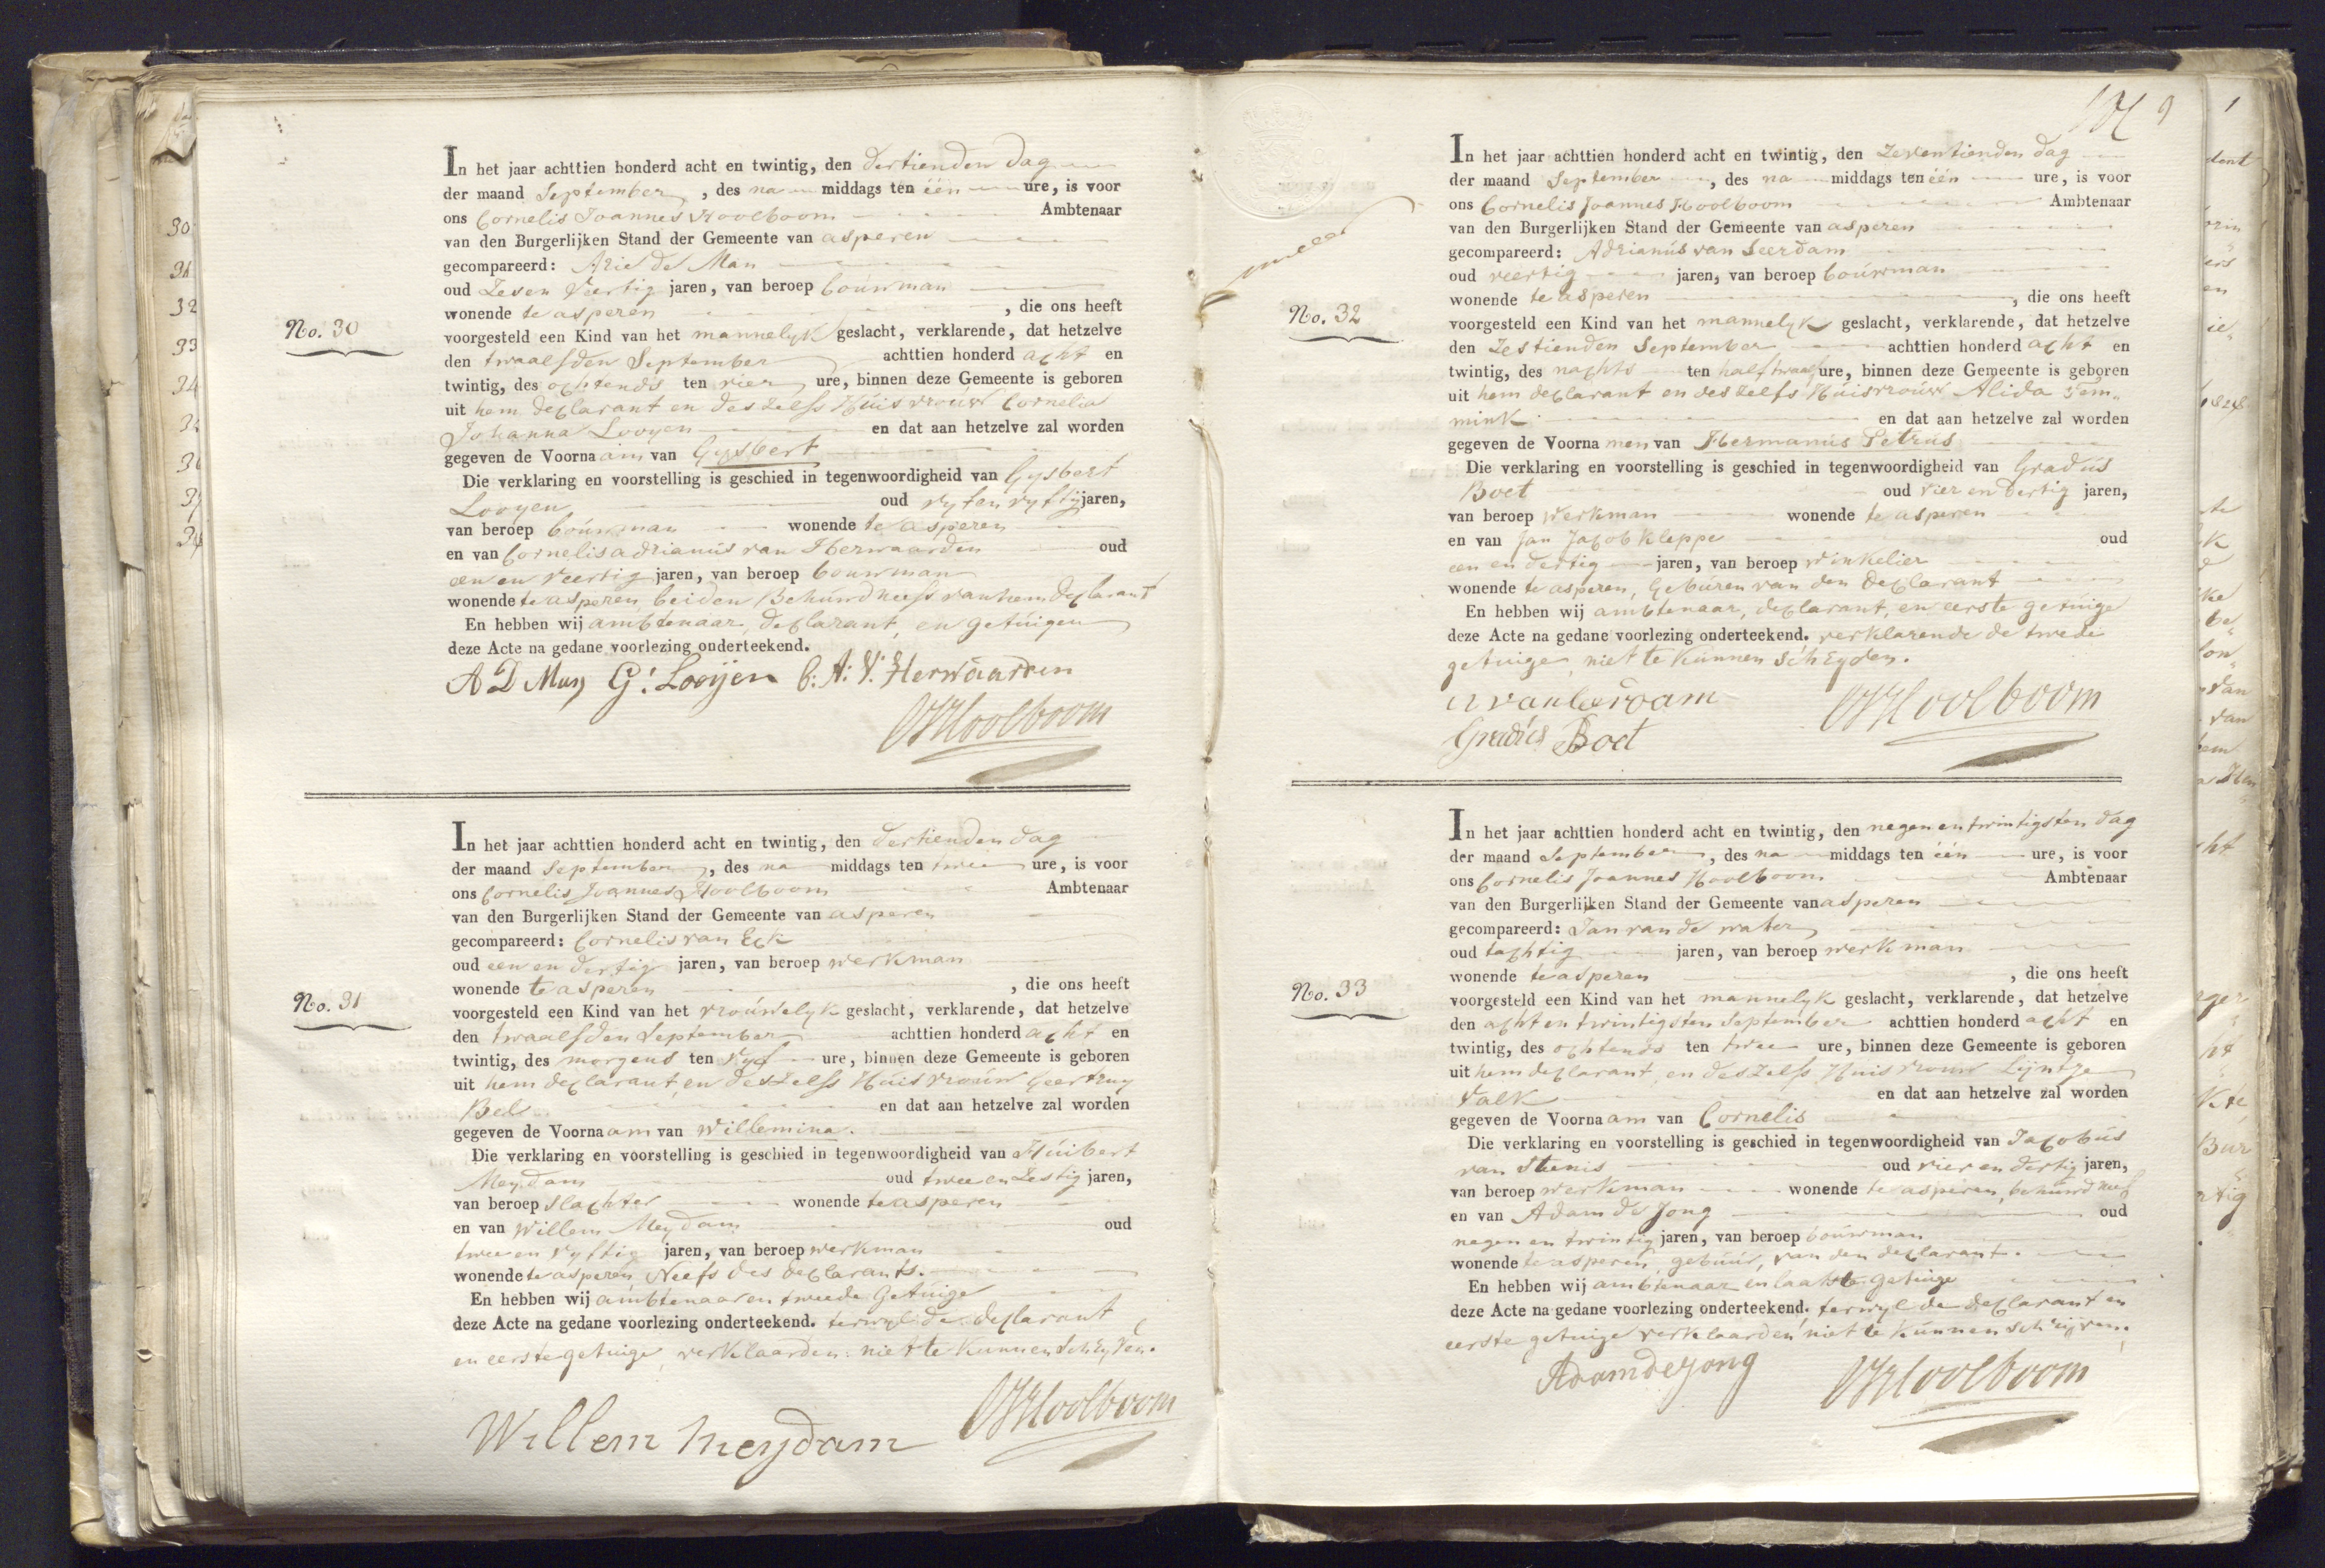 No. 30
In het jaar achttien honderd acht en twintig, den dertienden dag
der maand September, des na middags ten één ure, is voor
ons Cornelis Joannes Koolboom Ambtenaar
van den Burgerlijken Stand der Gemeente van asperen
gecompareerd: Arie de Man
oud Zes en Veertig jaren, van beroep bouwman
wonende te asperen, die ons heeft
voorgesteld een Kind van het mannelyk geslacht, verklarende, dat hetzelve
den twaalfden September achttien honderd acht en
twintig, des ochtends ten vier ure, binnen deze Gemeente is geboren
uit hem declarant en deszelfs Húisvroúw Cornelia
Johanna Looyen en dat aan hetzelve zal worden
gegeven de Voornaam van Gysbert
Die verklaring en voorstelling is geschied in tegenwoordigheid van Gysbert
Looyen oud vyf en vyftig jaren,
van beroep boúwman wonende te asperen
en van Cornelis adrianús van Herwaarden oud
een en veertig jaren, van beroep bouwman
wonende te asperen, beiden Behúwd neefs van hem declarant
En hebben wij ambtenaar, declarant, en getúigen
deze Acte na gedane voorlezing onderteekend.
A D Man G: Looijen C: A: V: Herwaarden
CJKoolboom
No. 31
In het jaar achttien honderd acht en twintig, den dertienden dag
der maand September, des na middags ten twee ure, is voor
ons Cornelis Joannes Koolboom Ambtenaar
van den Burgerlijken Stand der Gemeente van asperen
gecompareerd: Cornelis van Eck
oud een en dertig jaren, van beroep werkman
wonende te asperen, die ons heeft
voorgesteld een Kind van het vroúwelyk geslacht, verklarende, dat hetzelve
den twaalfden September achttien honderd acht en
twintig, des morgens ten vyf ure, binnen deze Gemeente is geboren
uit hem declarant, en deszelfs Húisvroúw Geertruy
Bel en dat aan hetzelve zal worden
gegeven de Voornaam van Willemina.
Die verklaring en voorstelling is geschied in tegenwoordigheid van Húibert
Meydam oud twee en Zestig jaren,
van beroep slachter wonende te asperen
en van Willem Meydam oud
twee en vyftig jaren, van beroep werkman
wonende te asperen, Neefs des declarants.
En hebben wij ambtenaar en tweede Getúige
deze Acte na gedane voorlezing onderteekend. terwyl de declarant
en eerste getuige verklaarden niet te Kunnen schryven.
Willem meydam CJKoolboom
9
No. 32
In het jaar achttien honderd acht en twintig, den Zeventienden dag
der maand September, des na middags ten één ure, is voor
ons Cornelis Joannes Koolboom Ambtenaar
van den Burgerlijken Stand der Gemeente van asperen
gecompareerd: Adrianús van Leerdam
oud veertig jaren, van beroep boúwman
wonende te asperen, die ons heeft
voorgesteld een Kind van het mannelyk geslacht, verklarende, dat hetzelve
den Zestienden September achttien honderd acht en
twintig, des nachts ten half twaalf ure, binnen deze Gemeente is geboren
uit hem declarant en deszelfs Húisvroúw Alida Tem„
mink en dat aan hetzelve zal worden
gegeven de Voornamen van Hermanús Petrús
Die verklaring en voorstelling is geschied in tegenwoordigheid van Gradús
Boet oud vier en dertig jaren,
van beroep werkman wonende te asperen
en van Jan Jacob Kleppe oud
een en dertig jaren, van beroep winkelier
wonende te asperen, Gebúren van den declarant
En hebben wij ambtenaar, declarant, en eerste getúige
deze Acte na gedane voorlezing onderteekend. verklarende de twede
getuige niet te Kúnnen schryven.
A van leerdam CJKoolboom
Gradús Boet
No. 33
In het jaar achttien honderd acht en twintig, den negen en twintigsten dag
der maand September, des na middags ten één ure, is voor
ons Cornelis Joannes Koolboom Ambtenaar
van den Burgerlijken Stand der Gemeente van asperen
gecompareerd: Jan van de water
oud tachtig jaren, van beroep werkman
wonende te asperen, die ons heeft
voorgesteld een Kind van het mannelyk geslacht, verklarende, dat hetzelve
den acht en twintigsten September achttien honderd acht en
twintig, des ochtends ten twee ure, binnen deze Gemeente is geboren
uit hem declarant, en deszelfs Huisvrouw Lijntje
Valk en dat aan hetzelve zal worden
gegeven de Voornaam van Cornelis
Die verklaring en voorstelling is geschied in tegenwoordigheid van Jacobús
van Stenis oud vier en dertig jaren,
van beroep werkman wonende te asperen, behúwd neef
en van Adam de Jong oud
negen en twintig jaren, van beroep boúwman
wonende te asperen, gebúúr, van den declarant.
En hebben wij ambtenaar en laatste getuige
deze Acte na gedane voorlezing onderteekend. terwyl de declarant en
eerste getuige verklaarden niet te Kúnnen schrijven.
Adam de jong CJKoolboom